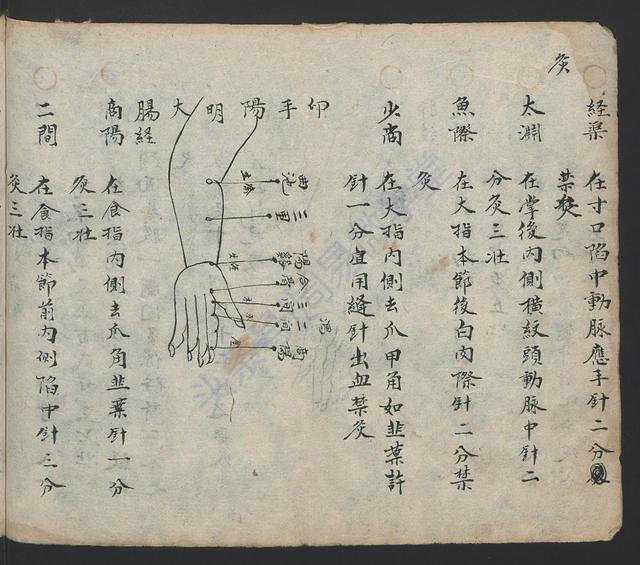 経渠 在寸口陷中動脉應手針二分
禁灸
灸
太淵 在掌後内側横紋頭動脉中針二
分灸三壮
魚際 在大指本節後白肉際針二分禁
灸
少商 在大指内側去爪甲角如韭葉許
針一分宜用縫針出血禁灸
卯手陽明大
腸経
曲池
三里
陽谿
合谷
三間
二間
商陽
商陽 在食指内側去爪角韭葉針一分
灸三壮
二間 在食指本節前内側陷中針三分
灸三壮